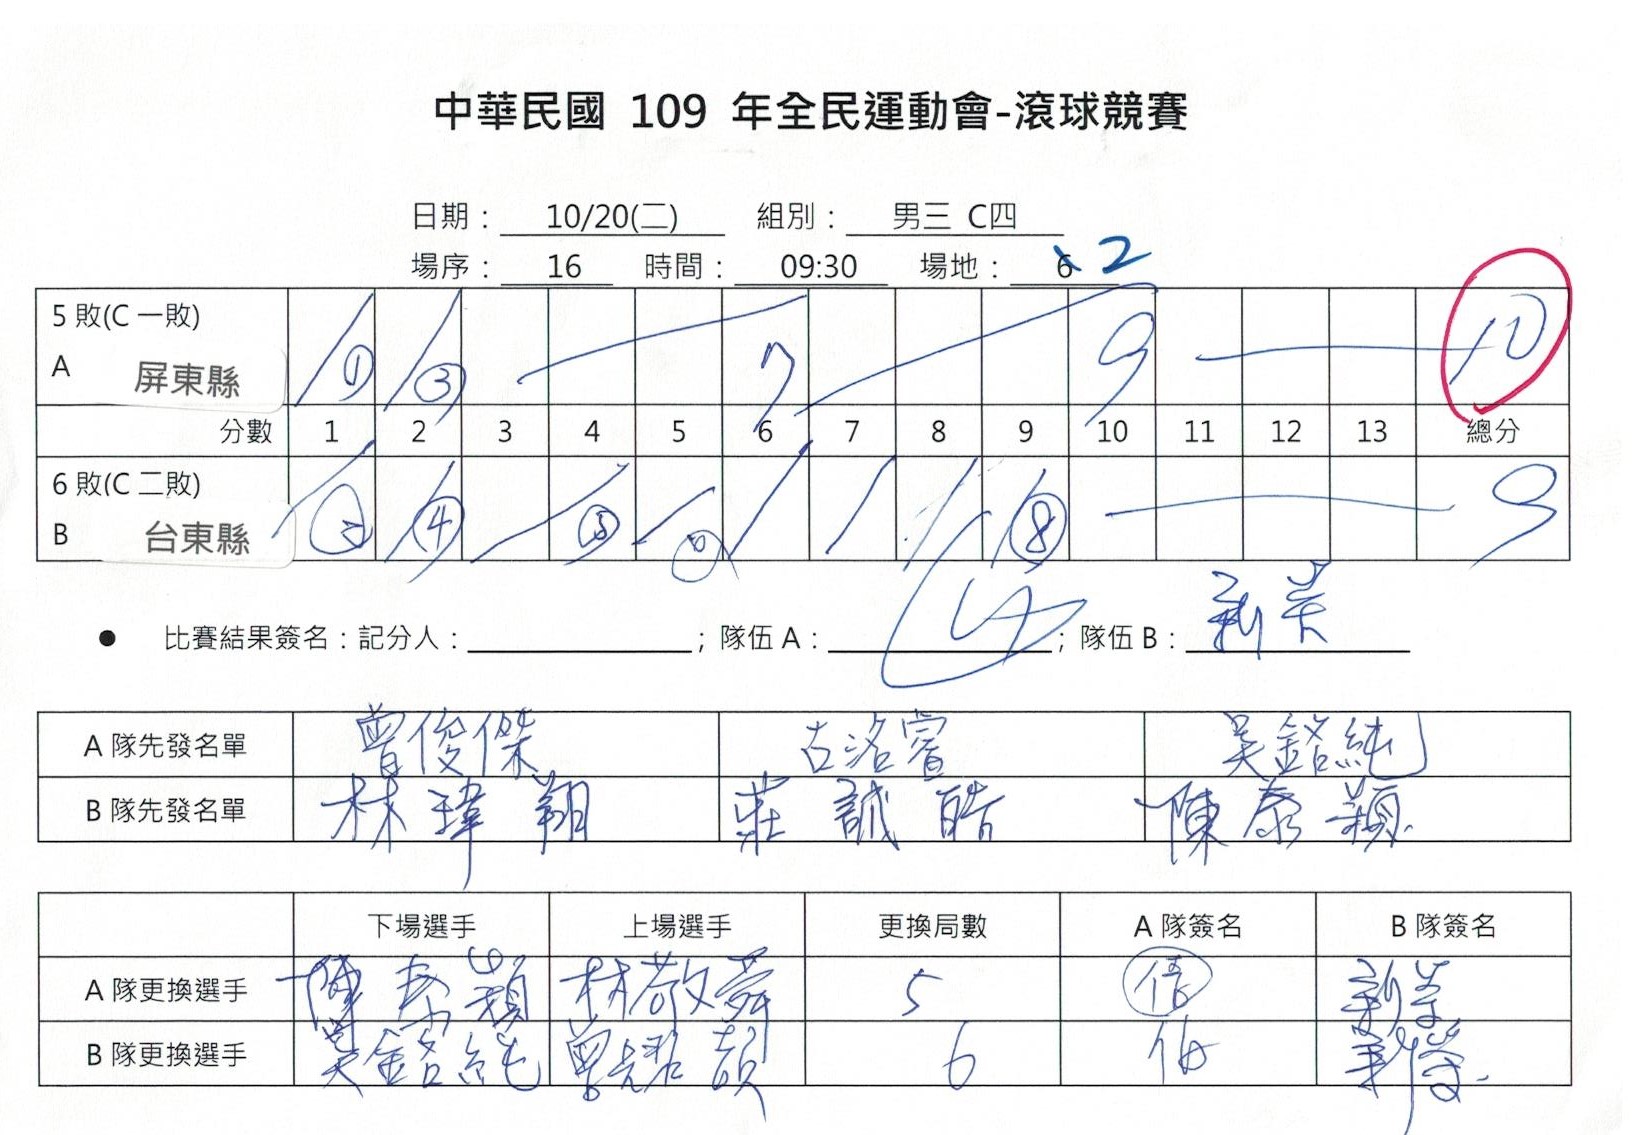 中華民國 109 年全民運動會-滾球競賽
日期： 10/20(二) 組別： 男三 C四
場序： 16 時間： 09:30 場地： 6 、2
5 敗(C 一敗)
A 屏東縣 ① ③ 7 9 10
分數 1 2 3 4 5 6 7 8 9 10 11 12 13 總分
6 敗(C 二敗)
B 台東縣 ② ④ ⑤ ⑥ ⑧ 9
● 比賽結果簽名：記分人：； 隊伍 A：； 隊伍 B：
A 隊先發名單 曾俊傑 古洺睿 吳銘純
B 隊先發名單 林瑋翔 莊誠皓 陳泰穎
下場選手 上場選手 更換局數 A 隊簽名 B 隊簽名
A 隊更換選手 陳泰穎 林敬舜 5
B 隊更換選手 吳銘純 6